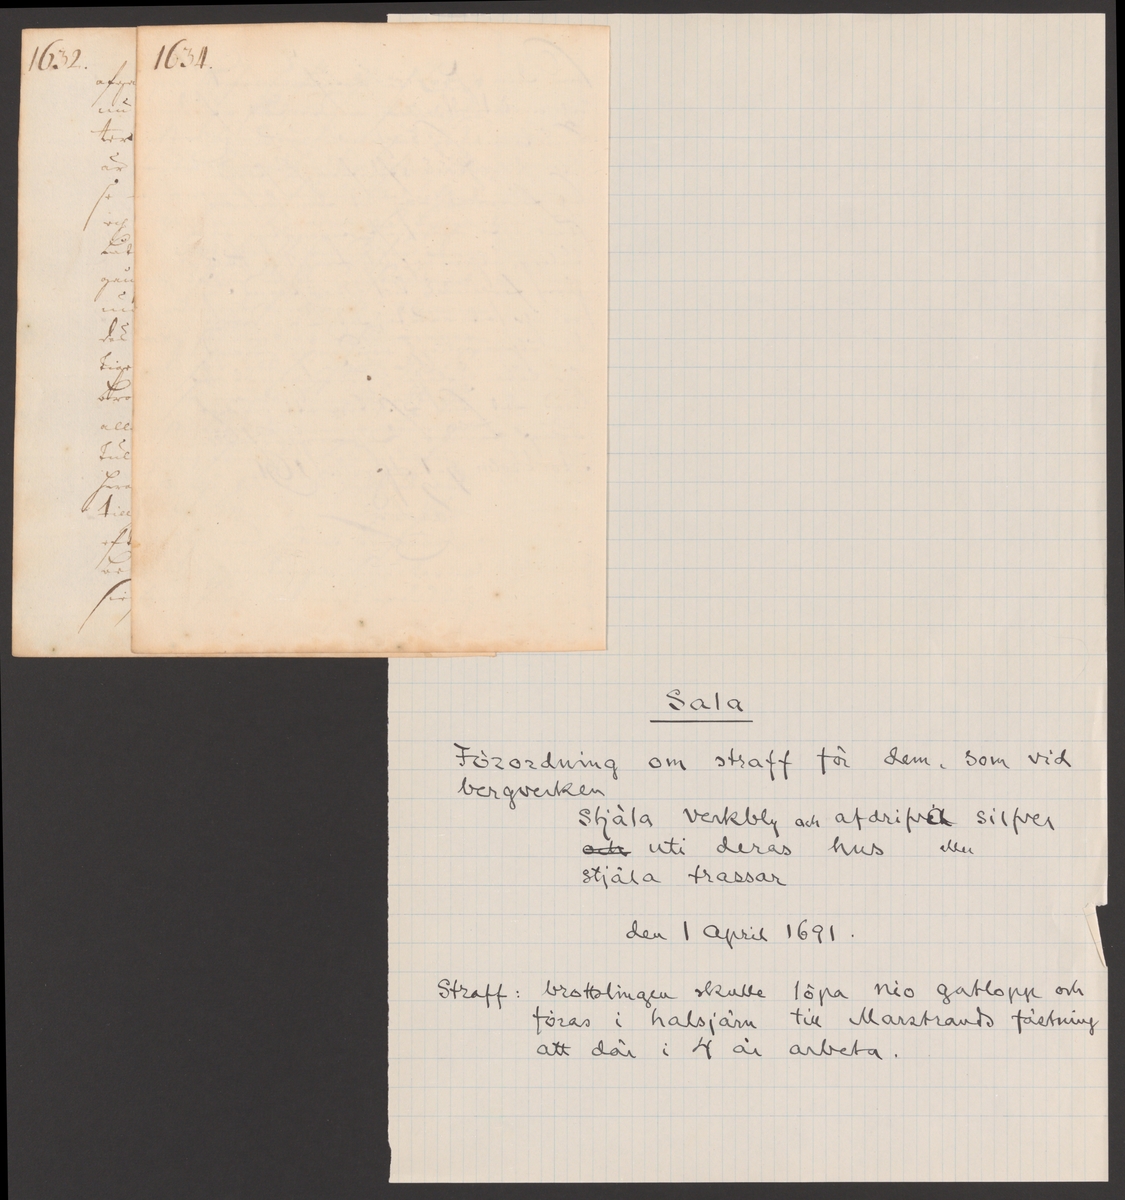 1632.
1634.
Sala
Förordning om straff för dem, som vid
bergverken
stjäla verkbly och afdrifva silfver
och uti deras hus eller
stjäla trassar
den 1 April 1691.
Straff: brottslingen skulle löpa nio gatlopp och
föras i halsjärn till Marstrands fästning
att där i 4 år arbeta.